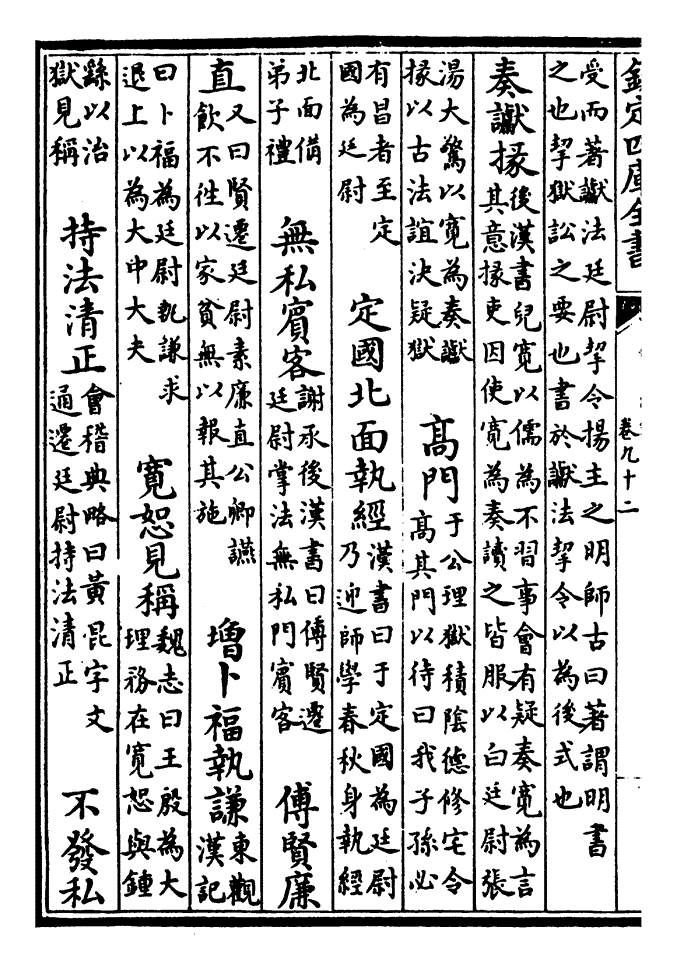 欽定四庫全書
卷九十二
受而著讞法廷尉挈令揚主之明師古曰著謂明書
之也挈獄訟之要也書於讞法挈令以為後式也
奏讞掾
後漢書兒寛以儒為不習事會有疑奏寛為言
其意掾吏因使寛為奏讀之皆服以白廷尉張
湯大驚以寛為奏讞
掾以古法誼決疑獄
髙門
于公理獄積陰德修宅令
髙其門以待曰我子孫必
有昌者至定
國為廷尉
定國北面執經
漢書曰于定國為廷尉
乃迎師學春秋身執經
北面備
弟子禮
無私賓客
謝承後漢書曰傅賢遷
廷尉掌法無私門賓客
傅賢廉
直
又曰賢遷廷尉素廉直公卿讌
飲不徃以家貧無以報其施
增卜福執謙
東觀
漢記
曰卜福為廷尉執謙求
退上以為大中大夫
寛恕見稱
魏志曰王殷為大
理務在寛恕與鍾
繇以治
獄見稱
持法清正
會稽典略曰黃昆字文
通遷廷尉持法清正
不發私